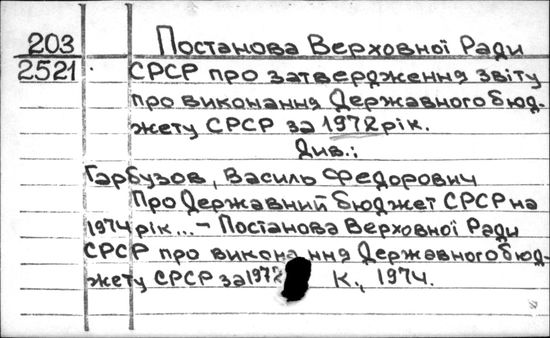 203 Постанова Верховної Ради
2521 СРСР про затвердження звіту
про виконання Державного бюд-
жету СРСР за 1972 рік.
Див.:
Гарбузов, Василь Федорович
Про Державний бюджет СРСР на
1974 рік... – Постанова Верховної Ради
СРСР про виконання Державного бюд-
жету СРСР за 1972 К., 1974.